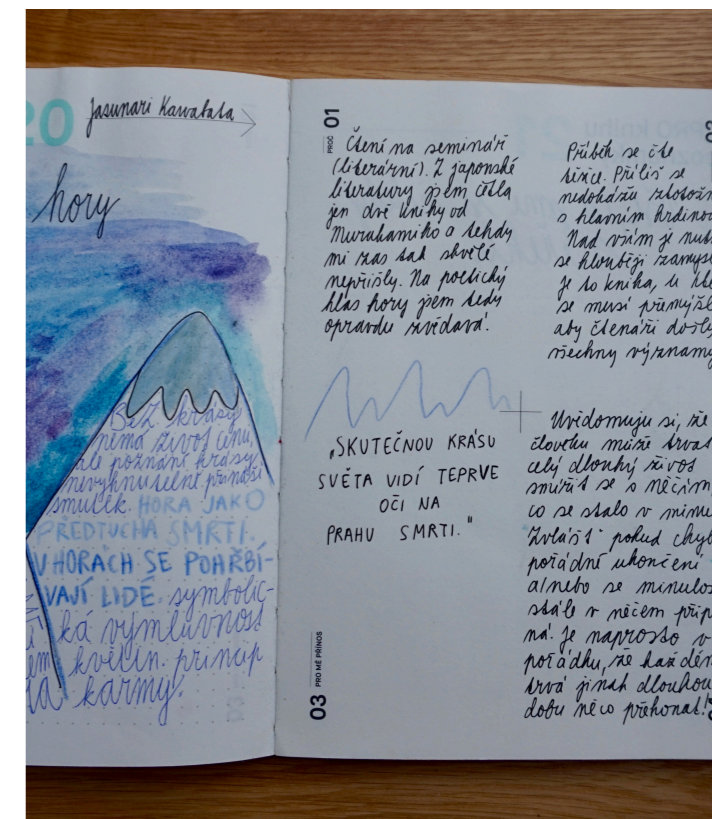 20
Jasunari Kawabata
hory
Bez krásy
nemá život cenu,
ale poznání krásy
nevyhnutelně přináší
smutek. HORA JAKO
PŘEDTUCHA SMRTI.
V HORÁCH SE POHŘBÍ-
VAJÍ LIDÉ. symbolic-
ká výmluvnost
květin. princip
karmy.
PROČ 01
Čtení na seminář
(literární). Z japonské
literatury jsem četla
jen dvě knihy od
Murakamiho a tehdy
mi zas tak skvělé
nepřišly. Na poetický
hlas hory jsem tedy
opravdu zvědavá.
„SKUTEČNOU KRÁSU
SVĚTA VIDÍ TEPRVE
OČI NA
PRAHU SMRTI."
03 PRO MĚ PŘÍNOS
Příběh se čte
těžce. Příliš se
nedokážu ztotožn
s hlavním hrdinou
Nad vším je nut
se hlouběji zamysl
Je to kniha, u kte
se musí přemýšl
aby čtenáři došly
všechny významy
Uvědomuju si, že
člověku může trvat
celý dlouhý život
smířit se s něčím,
co se stalo v minu
Zvlášť pokud chyb
pořádné ukončení
a/nebo se minulos
stále v něčem přip
ná. Je naprosto v
pořádku, že každém
trvá jinak dlouhou
dobu něco překonat!